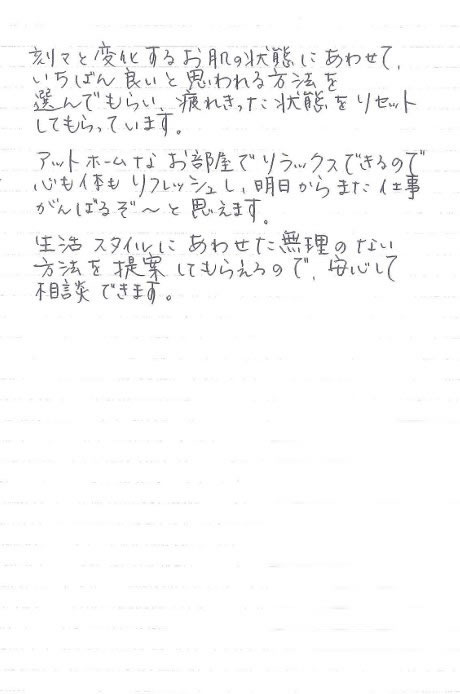 刻々と変化するお肌の状態にあわせて、
いちばん良いと思われる方法を
選んでもらい、疲れきった状態をリセット
してもらっています。
アットホームなお部屋でリラックスできるので
心も体もリフレッシュし、明日からまた仕事
がんばるぞ〜と思えます。
生活スタイルにあわせた無理のない
方法を提案してもらえるので、安心して
相談できます。